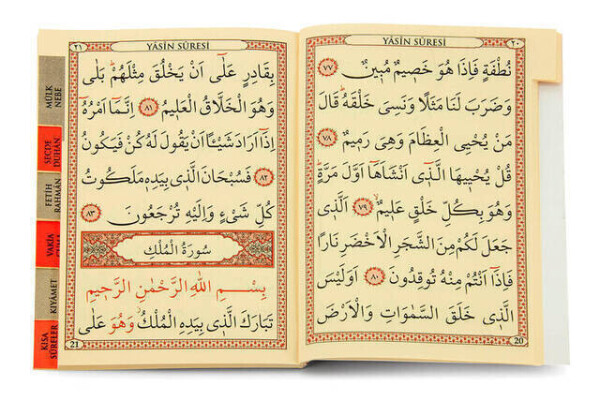 ٢٠
YÂSÎN SÛRESİ
نُطْفَةٍ فَاِذَا هُوَ خَص۪يمٌ مُب۪ينٌ ﴿٧٧﴾
وَضَرَبَ لَنَا مَثَلًا وَنَسِيَ خَلْقَهُۜ قَالَ
مَنْ يُحْيِي الْعِظَامَ وَهِيَ رَم۪يمٌ ﴿٧٨﴾
قُلْ يُحْي۪يهَا الَّذ۪ٓي اَنْشَاَهَٓا اَوَّلَ مَرَّةٍۜ
وَهُوَ بِكُلِّ خَلْقٍ عَل۪يمٌۙ ﴿٧٩﴾ اَلَّذ۪ي
جَعَلَ لَكُمْ مِنَ الشَّجَرِ الْاَخْضَرِ نَارًا
فَاِذَٓا اَنْتُمْ مِنْهُ تُوقِدُونَ ﴿٨٠﴾ اَوَلَيْسَ
الَّذ۪ي خَلَقَ السَّمٰوَاتِ وَالْاَرْضَ
20
٢١
YÂSÎN SÛRESİ
بِقَادِرٍ عَلٰٓى اَنْ يَخْلُقَ مِثْلَهُمْۜ بَلٰى
وَهُوَ الْخَلَّاقُ الْعَل۪يمُ ﴿٨١﴾ اِنَّمَٓا اَمْرُهُٓ
اِذَٓا اَرَادَ شَيْـًٔا اَنْ يَقُولَ لَهُ كُنْ فَيَكُونُ
﴿٨٢﴾ فَسُبْحَانَ الَّذ۪ي بِيَدِه۪ مَلَكُوتُ
كُلِّ شَيْءٍ وَاِلَيْهِ تُرْجَعُونَ ﴿٨٣﴾
سُورَةُ الْمُلْكِ
بِسْمِ اللّٰهِ الرَّحْمٰنِ الرَّح۪يمِ
تَبَارَكَ الَّذ۪ي بِيَدِهِ الْمُلْكُۘ وَهُوَ عَلٰى
21
MÜLK
NEBE
SECDE
DUHAN
FETİH
RAHMÂN
VAKIA
KIYÂMET
KISA
SÛRELER